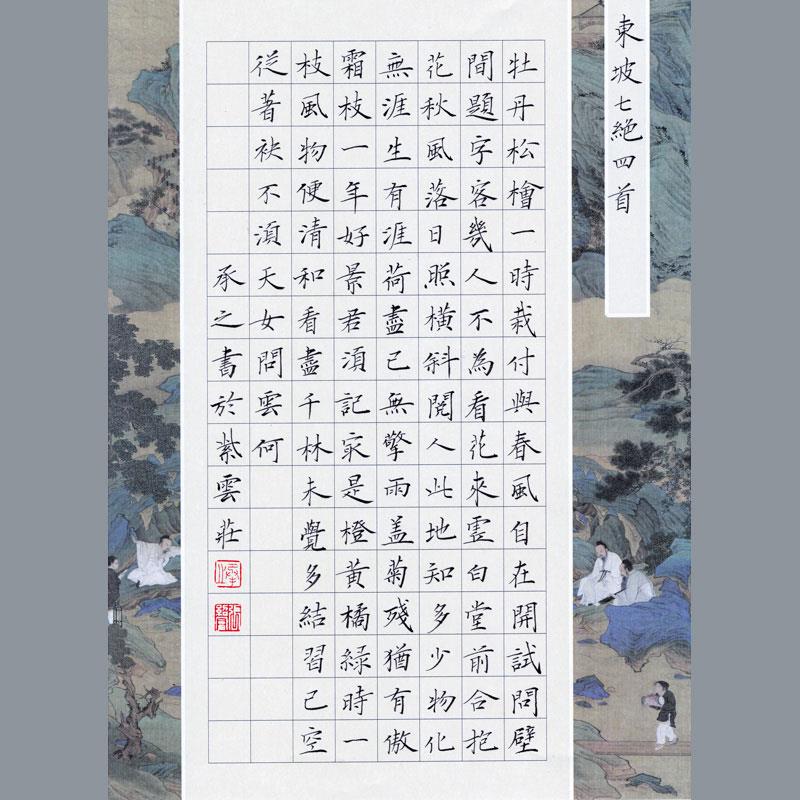 東坡七絶四首
牡丹松檜一時栽付與春風自在開試問壁
間題字客幾人不為看花來靈白堂前合抱
花秋風落日照橫斜閱人此地知多少物化
無涯生有涯荷盡已無擎雨盖菊殘猶有傲
霜枝一年好景君須記冣是橙黃橘緑時一
枝風物便清和看盡千林未覺多結習已空
從著袂不須天女問雲何
承之書於紫雲莊